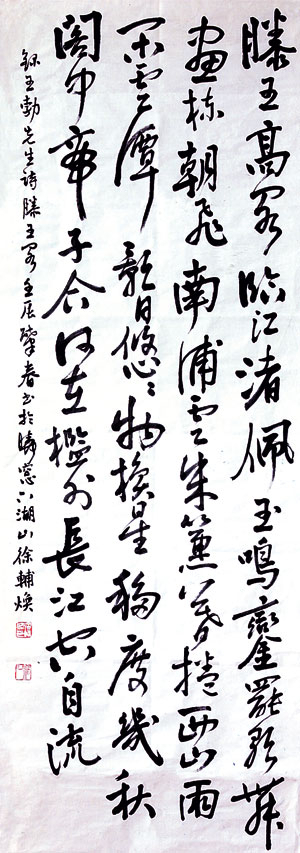 滕王高閣臨江渚佩玉鳴鑾罷歌舞
畫棟朝飛南浦雲朱簾暮捲西山雨
閑雲潭影日悠々物換星移度幾秋
閣中帝子今何在檻外長江空自流
錄王勃先生詩滕王閣壬辰肇春書於湖山徐輔煥